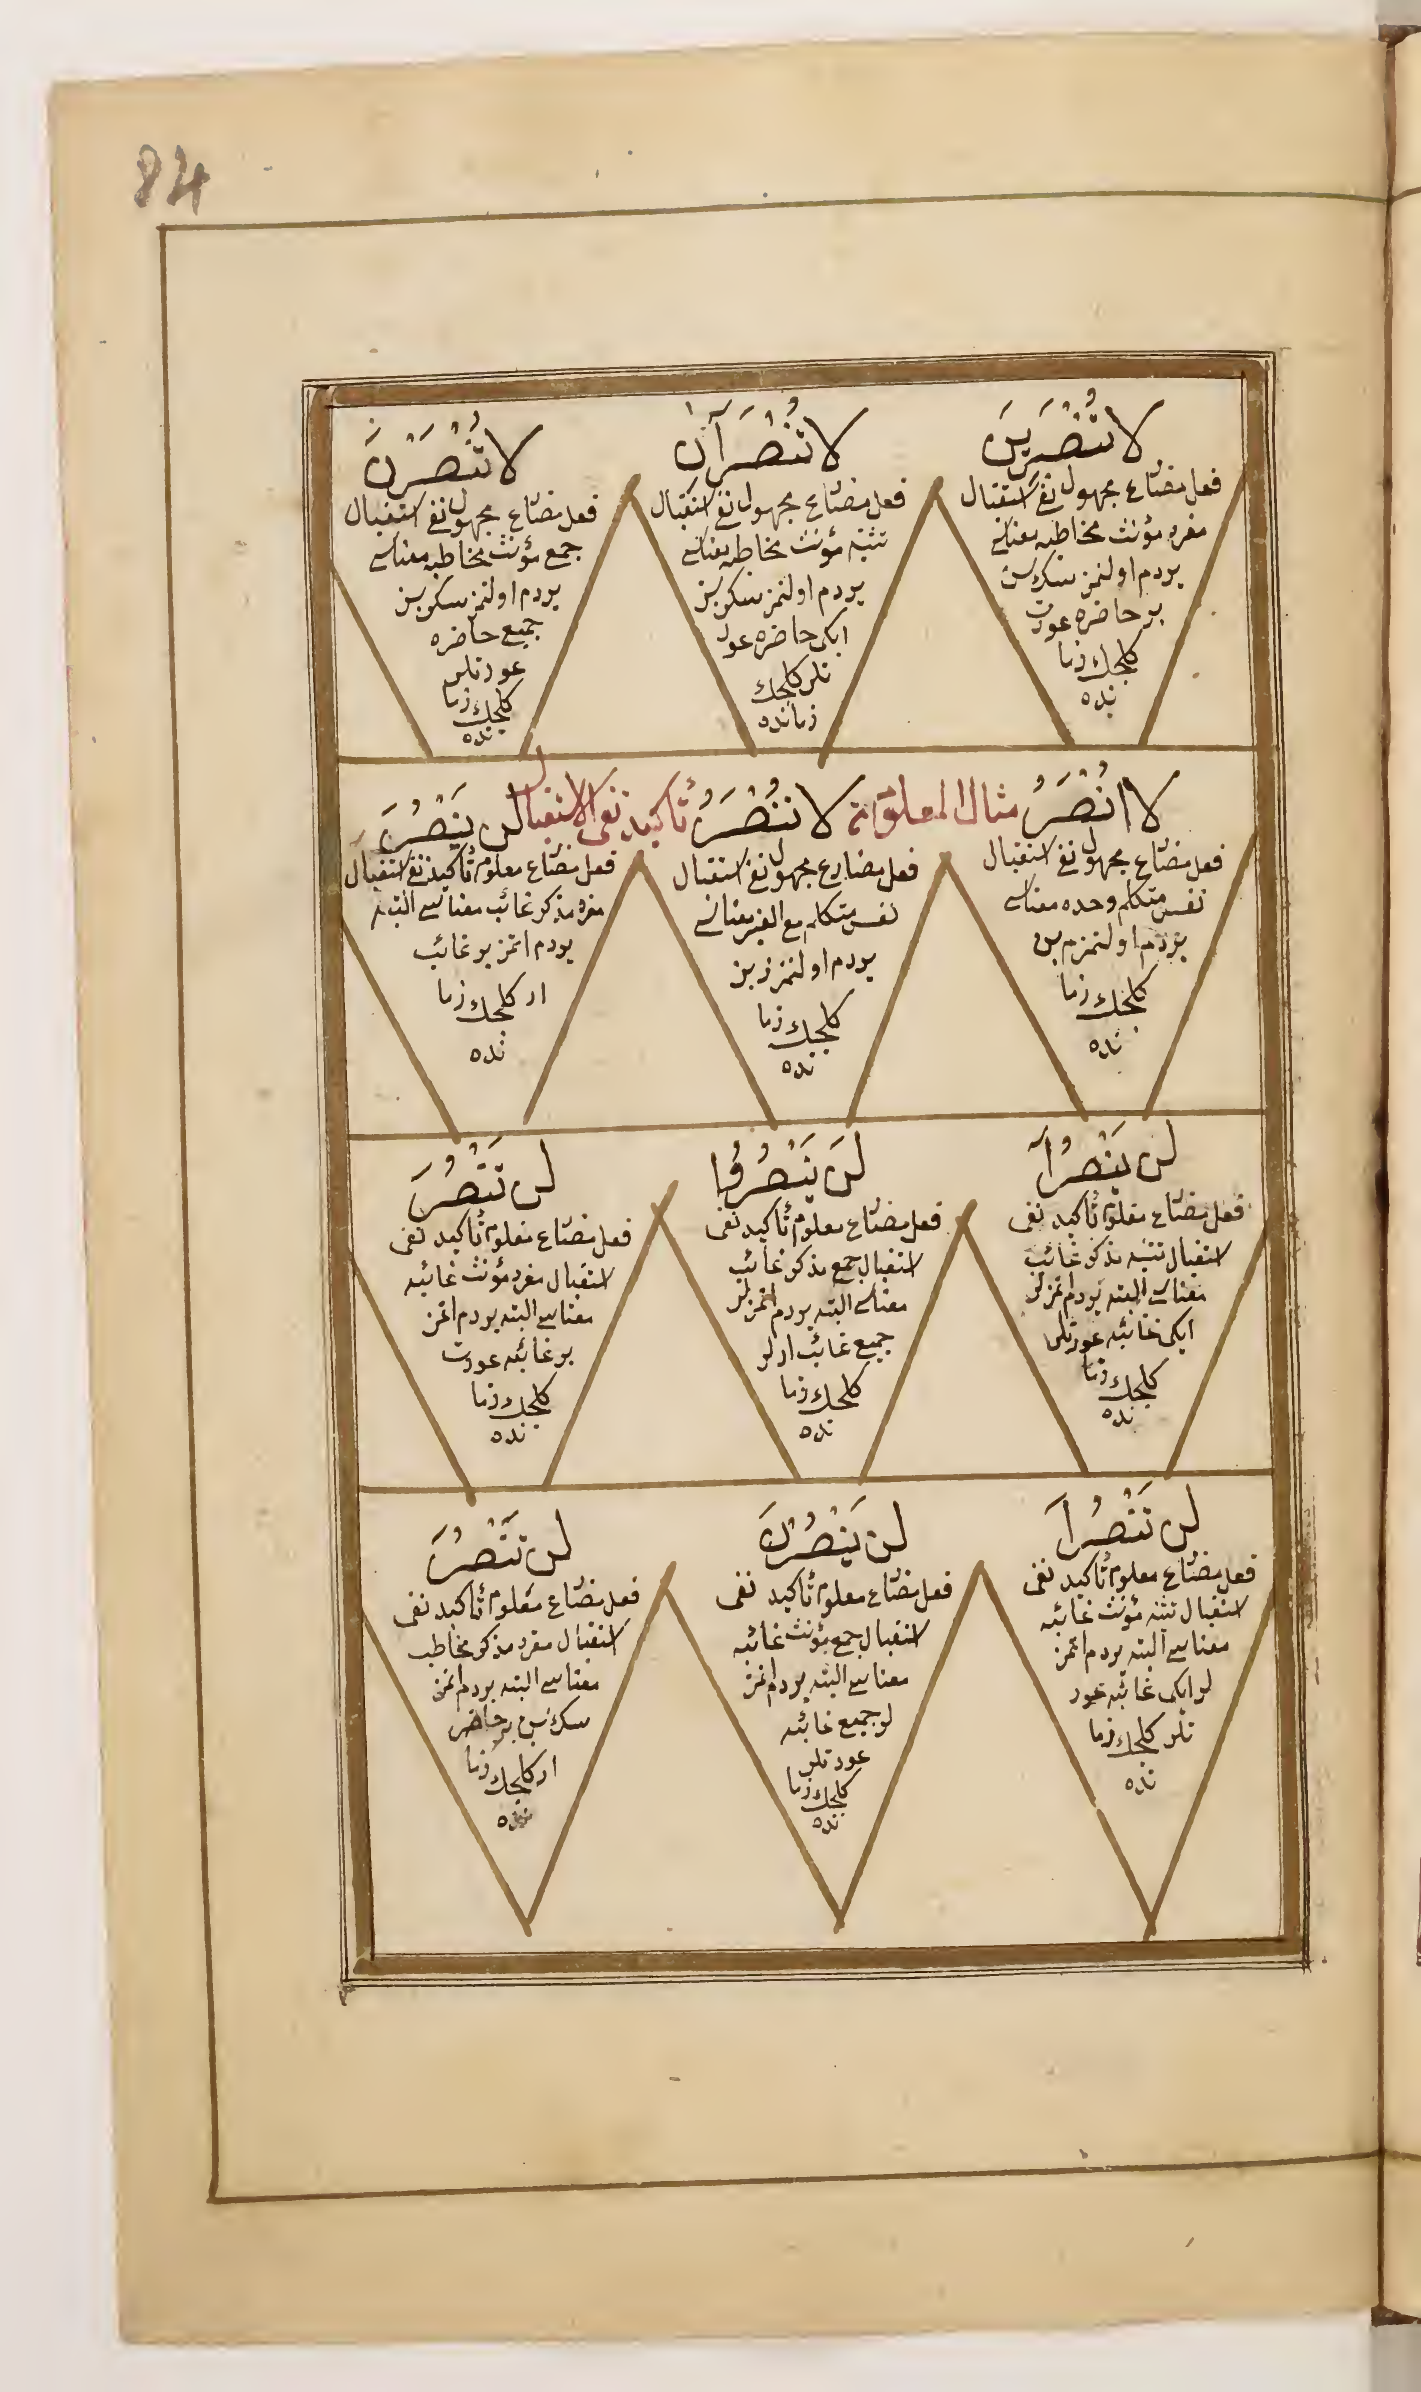 84
لا تُنْصَرِينَ
فعل مضارع مجهول نفى استقبال
مفرد مؤنث مخاطبه معناسى
يردم اولنمز سك سن
بر حاضره عورت
كلجك زما
نده
لا تُنْصَرَانِ
فعل مضارع مجهول نفى استقبال
تثنيه مؤنث مخاطبه معناسى
يردم اولنمز سكز سز
ايكى حاضره عور
تلر كلجك
زمانده
لا تُنْصَرْنَ
فعل مضارع مجهول نفى استقبال
جمع مؤنث مخاطبه معناسى
يردم اولنمز سكز سز
جميع حاضره
عورتلر
كلجك زما
نده
لا اُنْصَرُ
فعل مضارع مجهول نفى استقبال
نفس متكلم وحده معناسى
يردم اولنمزم بن
كلجك زما
نده
مثال المعلوم
لا نُنْصَرُ
فعل مضارع مجهول نفى استقبال
نفس متكلم مع الغير معناسى
يردم اولنمز ز بز
كلجك زما
نده
تأكيد نفى الاستقبال
لن يَنْصُرَ
فعل مضارع معلوم تأكيد نفى استقبال
مفرد مذكر غائب معناسى البته
يردم اتمز بر غائب
ار كلجك زما
نده
لن يَنْصُرَا
فعل مضارع معلوم تأكيد نفى
استقبال تثنيه مذكر غائب
معناسى البته يردم اتمزلر
ايكى غائبه عورتلر
كلجك زما
نده
لَنْ يَنْصُرُوا
فعل مضارع معلوم تأكيد نفى
استقبال جمع مذكر غائب
معناسى البته يردم اتمزلر
جميع غائب ارلر
كلجك زما
نده
لن تَنْصُرَ
فعل مضارع معلوم تأكيد نفى
استقبال مفرد مؤنث غائبه
معناسى البته يردم اتمز
بر غائبه عورت
كلجك زما
نده
لن تَنْصُرَا
فعل مضارع معلوم تأكيد نفى
استقبال تثنيه مؤنث غائبه
معناسى البته يردم اتمز
لر ايكى غائبه عور
تلر كلجك زما
نده
لن يَنْصُرْنَ
فعل مضارع معلوم تأكيد نفى
استقبال جمع مؤنث غائبه
معناسى البته يردم اتمز
لر جميع غائبه
عورتلر
كلجك زما
نده
لن تَنْصُرَ
فعل مضارع معلوم تأكيد نفى
استقبال مفرد مذكر مخاطب
معناسى البته يردم اتمز
سك سن بر حاضر
ار كلجك زما
نده